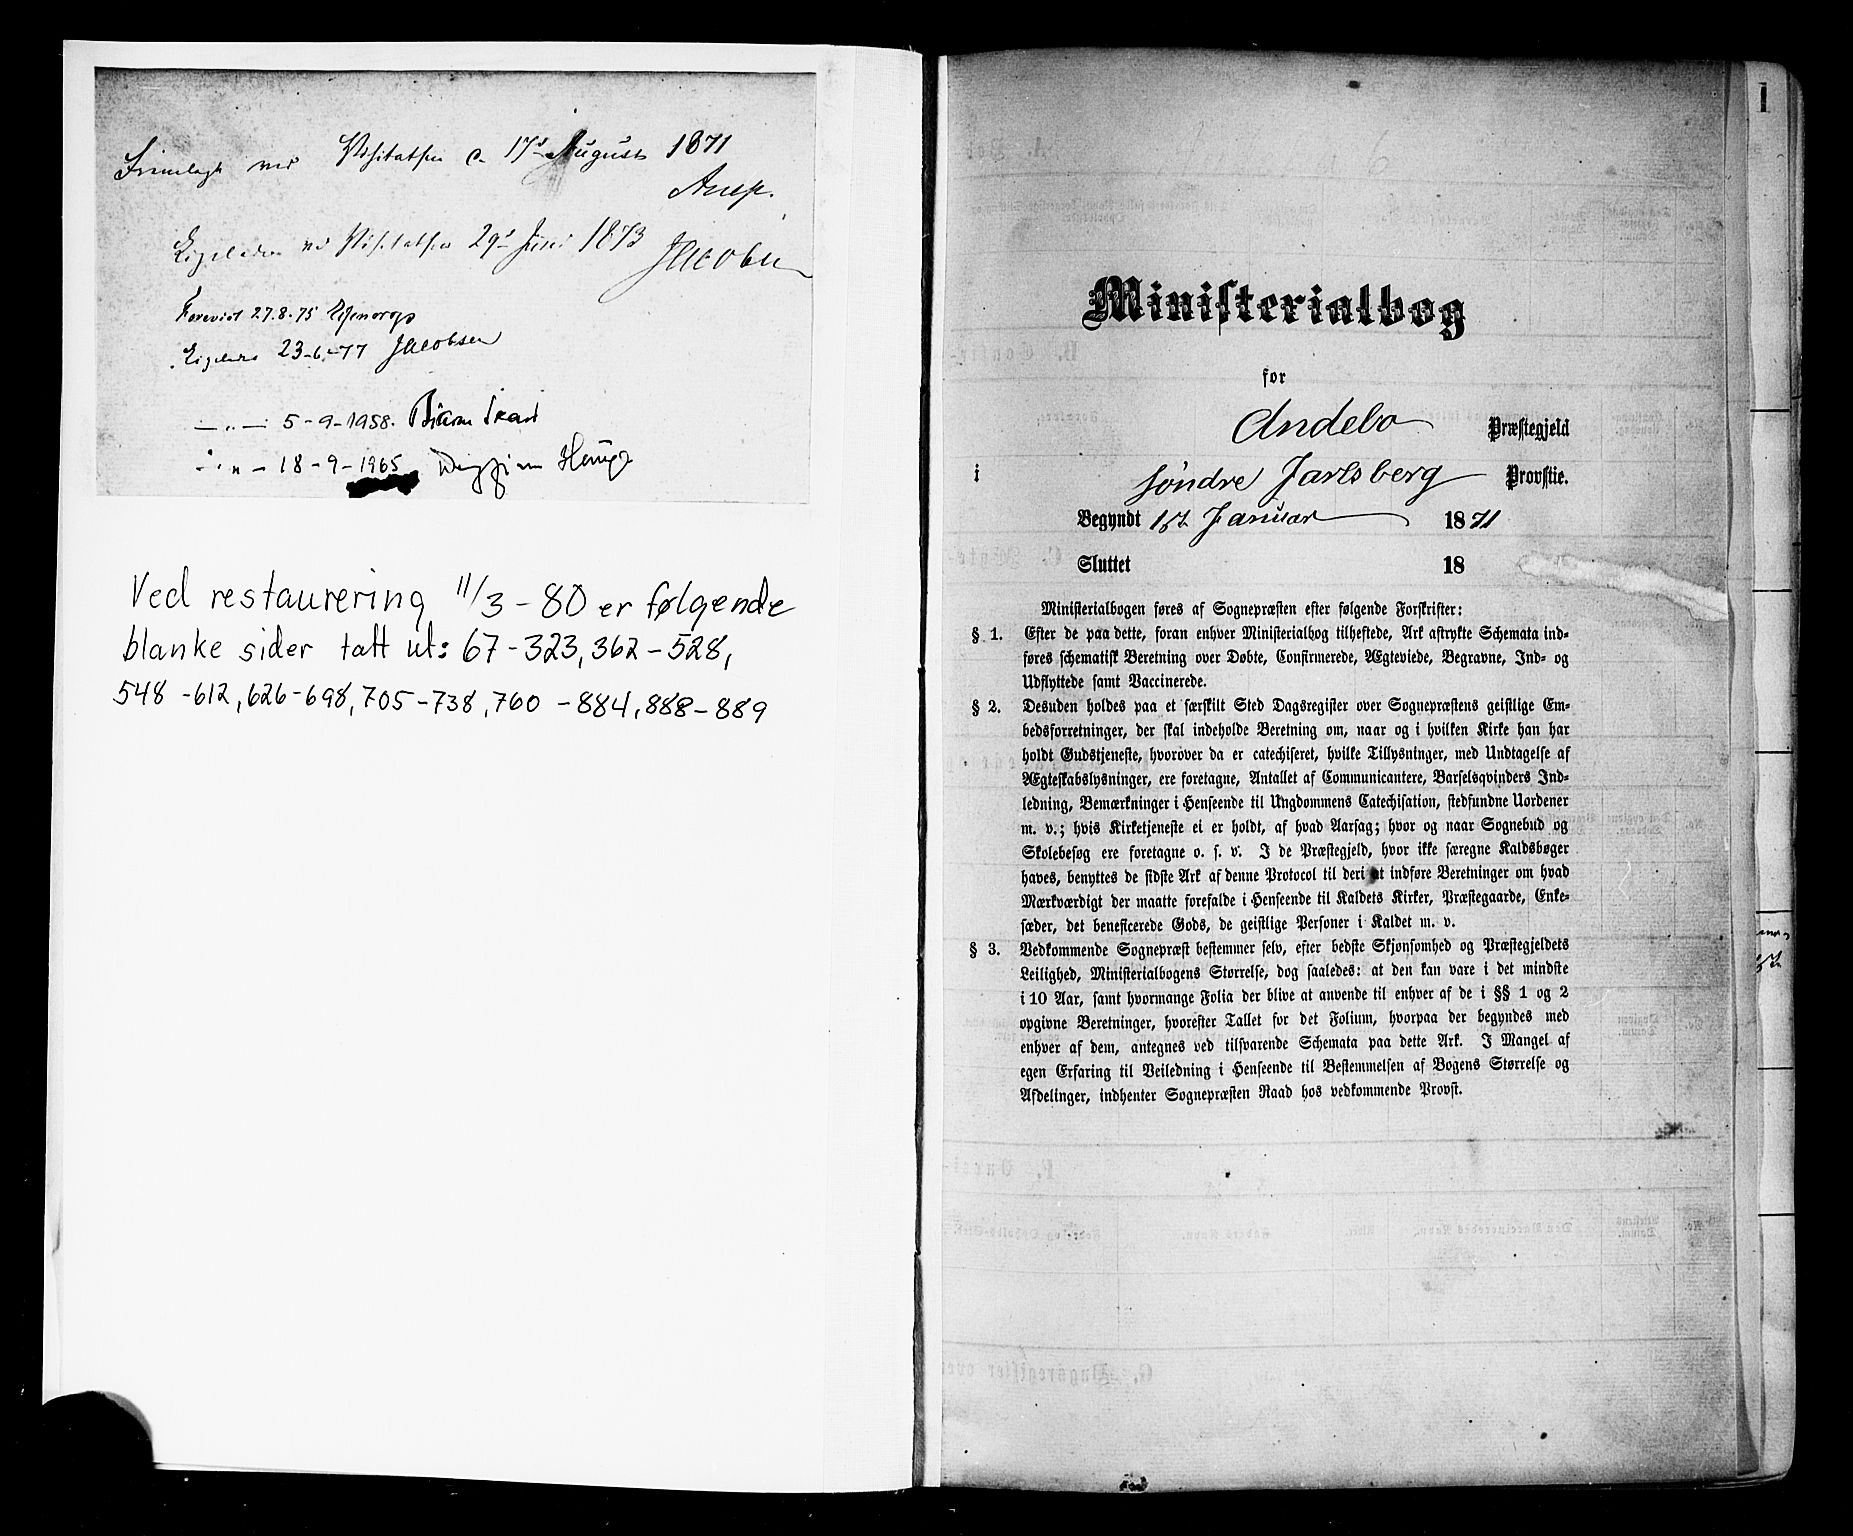 Fremlagt ved Visitatsen d. 17de August 1871
Arup.
Ligeledes ved Visitatsen 29de Juni 1873 J Jacobsen
Forevist 27.8.75
Ligeledes 23-6-77 J Jacobsen
— „ — 5-9-1958.
— „ — 18-9-1965 Hauge
Ved restaurering 11/3-80 er følgende
blanke sider tatt ut: 67-323, 362-528,
548-612, 626-698, 705-738, 760-884, 888-889
1
Ministerialbog
for
Andebo Præstegjeld
i Søndre Jarlsberg Provstie.
Begyndt 1st Januar 1871
Sluttet 18
Ministerialbogen føres af Sognepræsten efter følgende Forskrifter:
§ 1. Efter de paa dette, foran enhver Ministerialbog tilheftede, Ark aftrykte Schemata ind-
føres schematisk Beretning over Døbte, Confirmerede, Ægteviede, Begravne, Ind- og
Udflyttede samt Vaccinerede.
§ 2. Desuden holdes paa et særskilt Sted Dagsregister over Sognepræstens geistlige Em-
bedsforretninger, der skal indeholde Beretning om, naar og i hvilken Kirke han har
holdt Gudstjeneste, hvorover da er catechiseret, hvilke Tillysninger, med Undtagelse af
Ægteskabslysninger, ere foretagne, Antallet af Communicantere, Barselqvinders Ind-
ledning, Bemærkninger i Henseende til Ungdommens Catechisation, stedfundne Uordener
m. v.; hvis Kirketjeneste ei er holdt, af hvad Aarsag; hvor og naar Sognebud og
Skolebesøg ere foretagne o. s. v. I de Præstegjeld, hvor ikke særegne Kaldsbøger
haves, benyttes de sidste Ark af denne Protocol til deri at indføre Beretninger om hvad
Mærkværdigt der maatte forefalde i Henseende til Kaldets Kirker, Præstegaarde, Enke-
sæder, det beneficerede Gods, de geistlige Personer i Kaldet m. v.
§ 3. Vedkommende Sognepræst bestemmer selv, efter bedste Skjønsomhed og Præstegjeldets
Leilighed, Ministerialbogens Størrelse, dog saaledes: at den kan vare i det mindste
i 10 Aar, samt hvormange Folia der blive at anvende til enhver af de i §§ 1 og 2
opgivne Beretninger, hvorefter Tallet for det Folium, hvorpaa der begyndes med
enhver af dem, antegnes ved tilsvarende Schemata paa dette Ark. I Mangel af
egen Erfaring til Veiledning i Henseende til Bestemmelsen af Bogens Størrelse og
Afdelinger, indhenter Sognepræsten Raad hos vedkommende Provst.